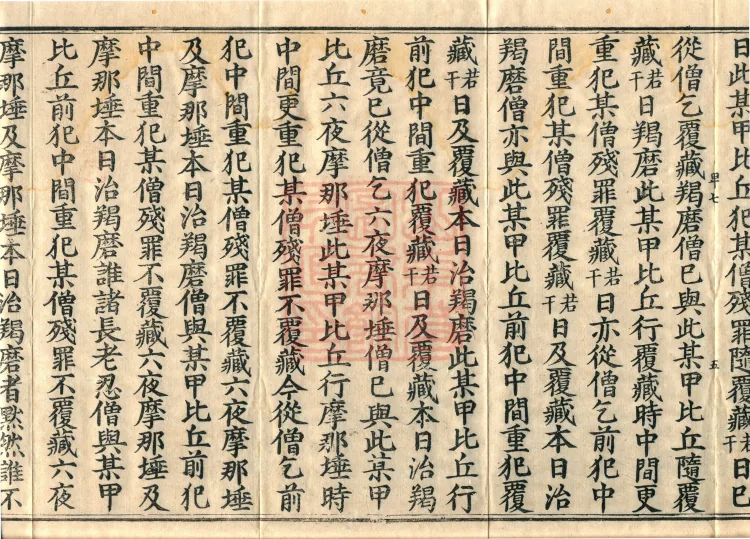 日此某甲比丘犯某僧殘罪隨覆藏若干日已
卑七 五
從僧乞覆藏羯磨僧已與此某甲比丘隨覆
藏若干日羯磨此某甲比丘行覆藏時中間更
重犯某僧殘罪覆藏若干日亦從僧乞前犯中
間重犯某僧殘罪覆藏若干日及覆藏本日治
羯磨僧亦與此某甲比丘前犯中間重犯覆
藏若干日及覆藏本日治羯磨此某甲比丘行
前犯中間重犯覆藏若干日及覆藏本日治羯
磨竟已從僧乞六夜摩那埵僧已與此某甲
比丘六夜摩那埵此某甲比丘行摩那埵時
中間更重犯某僧殘罪不覆藏今從僧乞前
犯中間重犯某僧殘罪不覆藏六夜摩那埵
及摩那埵本日治羯磨僧與某甲比丘前犯
中間重犯某僧殘罪不覆藏六夜摩那埵及
摩那埵本日治羯磨誰諸長老忍僧與某甲
比丘前犯中間重犯某僧殘罪不覆藏六夜
摩那埵及摩那埵本日治羯磨者默然誰不